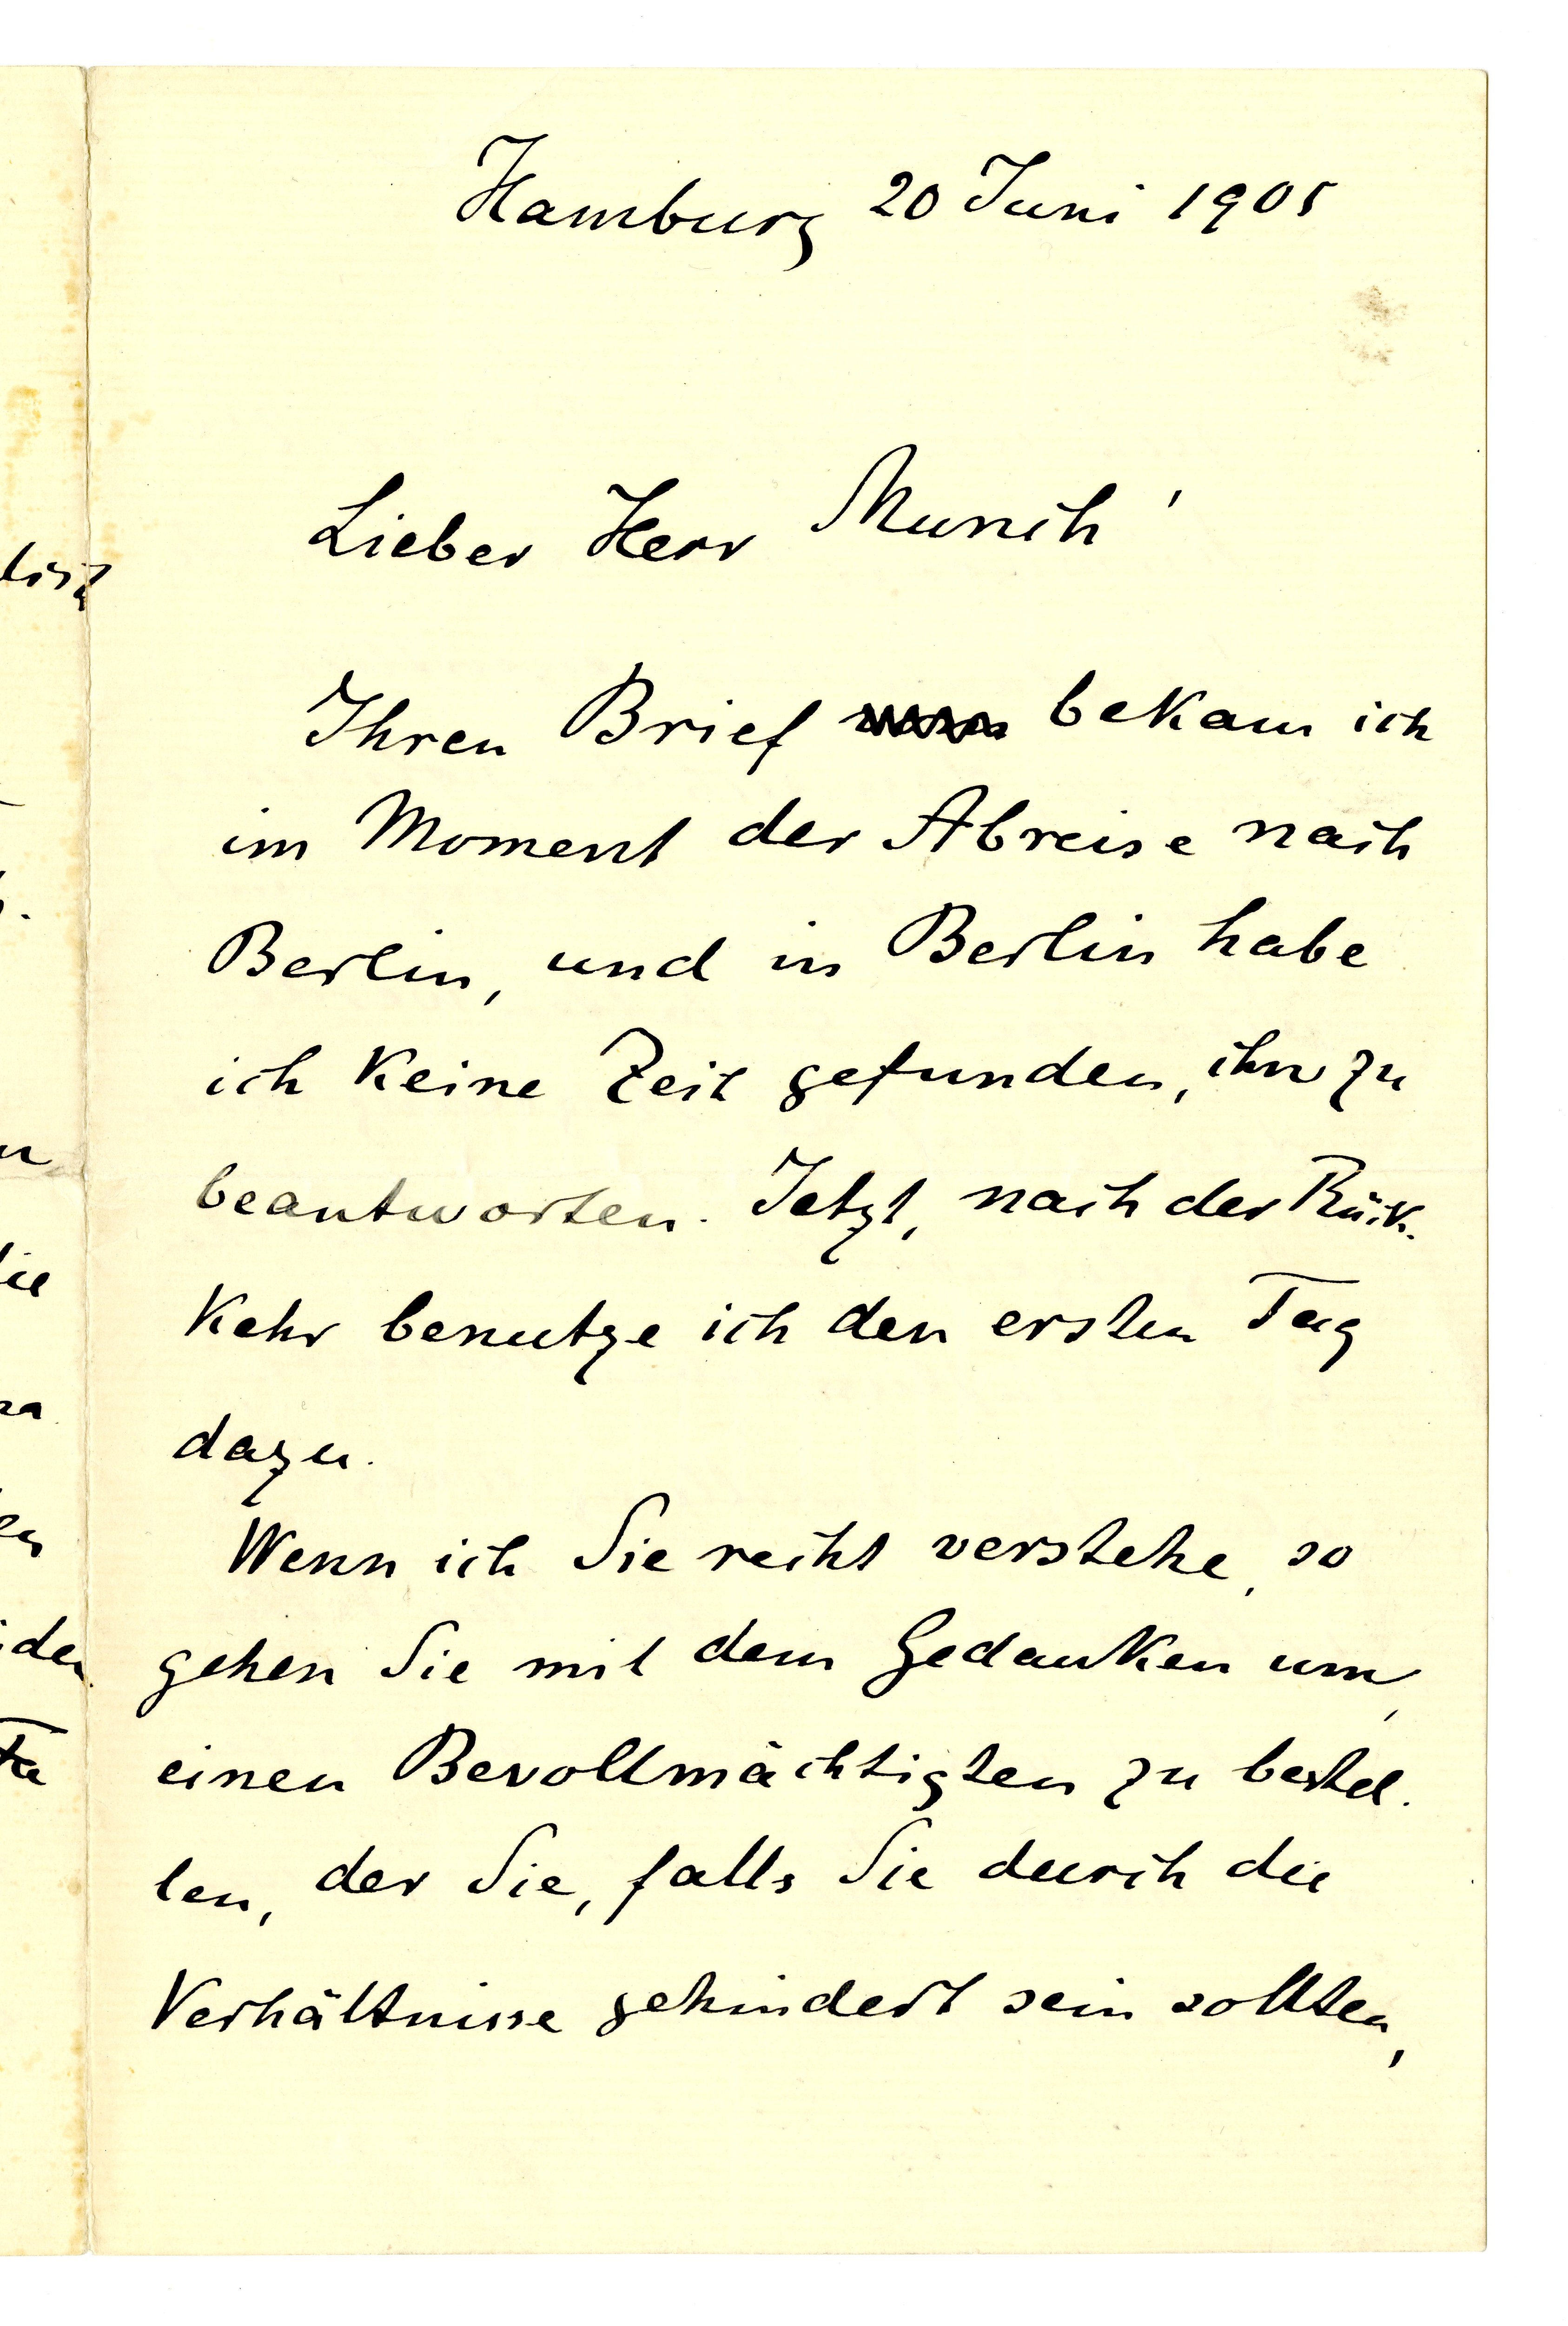 Hamburg 20 Juni 1905
Lieber Herr Munch!
Ihren Brief bekam ich
im Moment der Abreise nach
Berlin, und in Berlin habe
ich keine Zeit gefunden, ihn zu
beantworten. Jetzt, nach der Rück-
kehr benutze ich den ersten Tag
dazu.
Wenn ich Sie recht verstehe, so
gehen Sie mit dem Gedanken um,
einen Bevollmächtigten zu bestel-
len, der Sie, falls Sie durch die
Verhältnisse gehindert sein sollten,